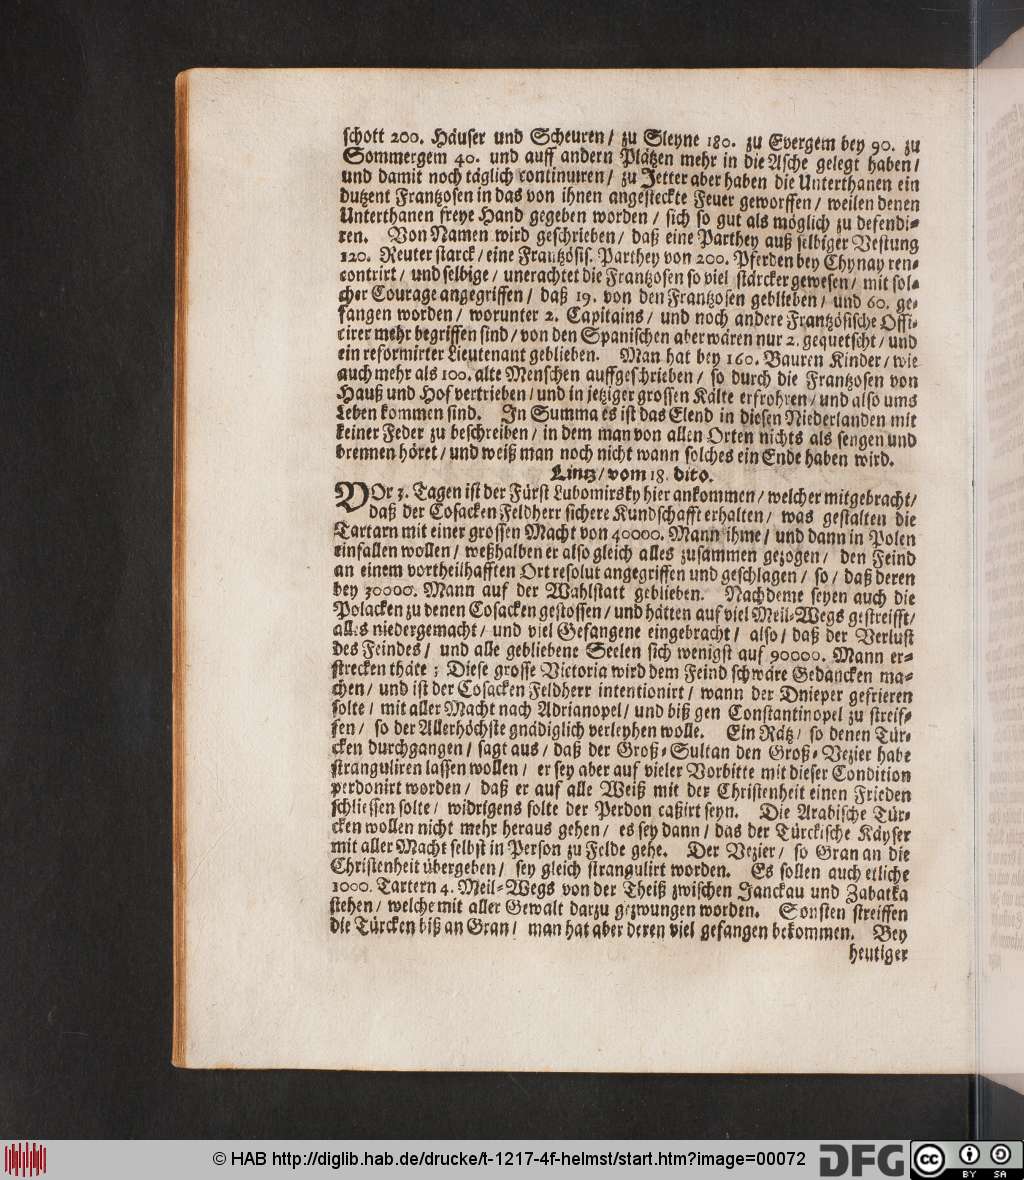 schott 200. Häuser und Scheuren / zu Sleyne 180. zu Evergem bey 90. zu
Sommergem 40. und auff andern Plätzen mehr in die Asche gelegt haben /
und damit noch täglich continuiren / zu Jetter aber haben die Unterthanen ein
dutzent Frantzosen in das von ihnen angesteckte Feuer geworffen / weilen denen
Unterthanen freye Hand gegeben worden / sich so gut als möglich zu defendi⸗
ren. Von Namen wird geschrieben / daß eine Parthey auß selbiger Vestung
120. Reuter starck / eine Frantzösis. Parthey von 200. Pferden bey Chynay ren⸗
contrirt / und selbige / unerachtet die Frantzosen so viel stärcker gewesen / mit sol⸗
cher Courage angegriffen / daß 19. von den Frantzosen geblieben / und 60. ge⸗
fangen worden / worunter 2. Capitains / und noch andere Frantzösische Offi⸗
cirer mehr begriffen sind / von den Spanischen aber wären nur 2. gequetscht / und
ein reformirter Lieutenant geblieben. Man hat bey 160. Bauren Kinder / wie
auch mehr als 100. alte Menschen auffgeschrieben / so durch die Frantzosen von
Hauß und Hof vertrieben / und in jetziger grossen Kälte erfrohren / und also ums
Leben kommen sind. In Summa es ist das Elend in diesen Niederlanden mit
keiner Feder zu beschreiben / in dem man von allen Orten nichts als sengen und
brennen höret / und weiß man noch nicht wann solches ein Ende haben wird.
Lintz / vom 18. dito.
VOr 3. Tagen ist der Fürst Lubomirsky hier ankommen / welcher mitgebracht /
daß der Cosacken Feldherr sichere Kundschafft erhalten / was gestalten die
Tartarn mit einer grossen Macht von 40000. Mann ihme / und dann in Polen
einfallen wollen / weßhalben er also gleich alles zusammen gezogen / den Feind
an einem vortheilhafften Ort resolut angegriffen und geschlagen / so / daß deren
bey 30000. Mann auf der Wahlstatt geblieben. Nachdeme seyen auch die
Polacken zu denen Cosacken gestossen / und hätten auf viel Meil⸗Wegs gestreifft /
alles niedergemacht / und viel Gefangene eingebracht / also / daß der Verlust
des Feindes / und alle gebliebene Seelen sich wenigst auf 90000. Mann er⸗
strecken thäte ; Diese grosse Victoria wird dem Feind schwäre Gedancken ma⸗
chen / und ist der Cosacken Feldherr intentionirt / wann der Dnieper gefrieren
solte / mit aller Macht nach Adrianopel / und biß gen Constantinopel zu streif⸗
fen / so der Allerhöchste gnädiglich verleyhen wolle. Ein Rätz / so denen Tür⸗
cken durchgangen / sagt aus / daß der Groß⸗Sultan den Groß⸗Vezier habe
stranguliren lassen wollen / er sey aber auf vieler Vorbitte mit dieser Condition
perdonirt worden / daß er auf alle Weiß mit der Christenheit einen Frieden
schliessen solte / widrigens solte der Perdon caßirt seyn. Die Arabische Tür⸗
cken wollen nicht mehr heraus gehen / es sey dann / das der Türckische Käyser
mit aller Macht selbst in Person zu Felde gehe. Der Vezier / so Gran an die
Christenheit übergeben / sey gleich strangulirt worden. Es sollen auch etliche
1000. Tartern 4. Meil⸗Wegs von der Theiß zwischen Janckau und Zabatka
stehen / welche mit aller Gewalt darzu gezwungen worden. Sonsten streiffen
die Türcken biß an Gran / man hat aber deren viel gefangen bekommen. Bey
heutiger
© HAB http://diglib.hab.de/drucke/t-1217-4f-helmst/start.htm?image=00072
DFG
cc BY SA